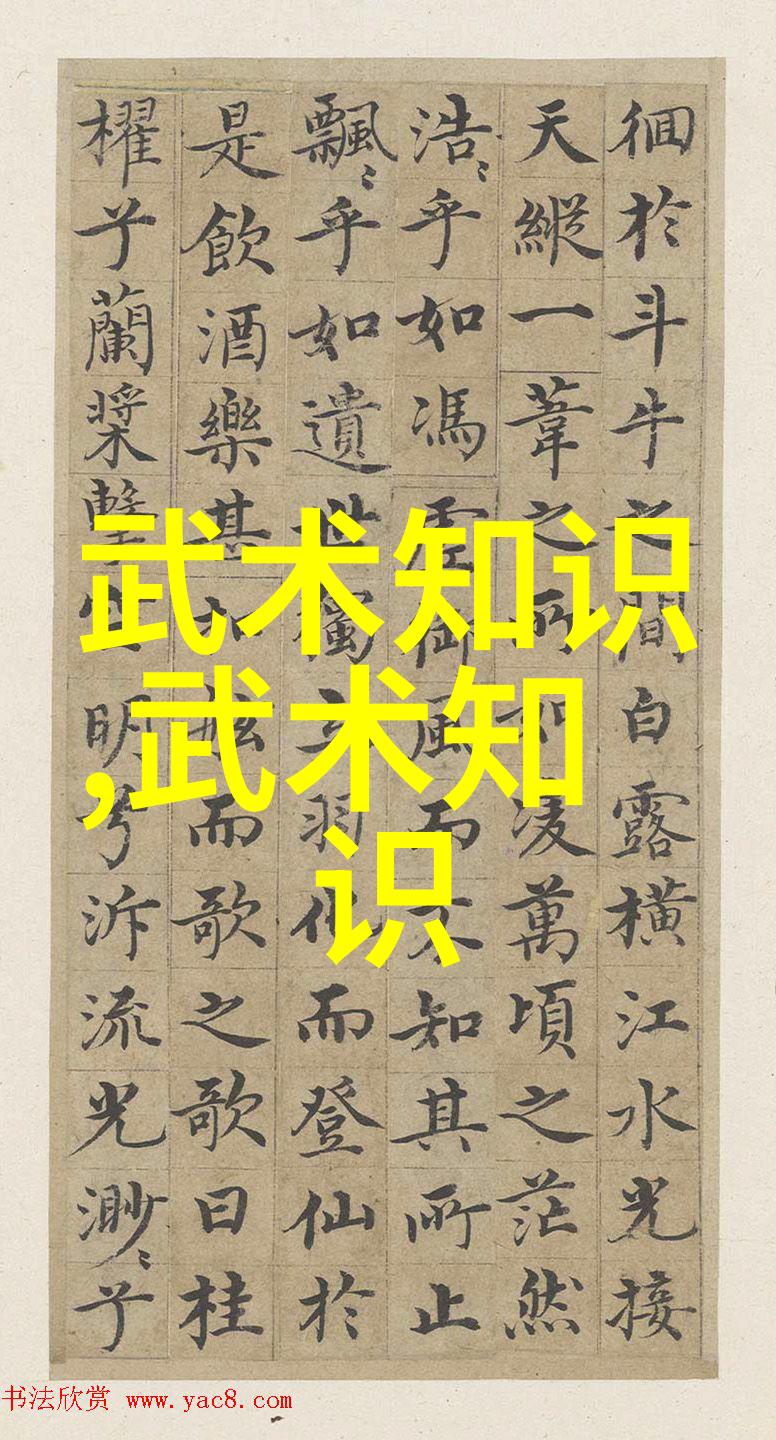 徊於斗牛之間白露橫江水光接
天縱一葦之所如凌萬頃之茫然
浩〻乎如馮虛御風而不知其所止
飄〻乎如遺世獨立羽化而登仙於
是飲酒樂甚扣舷而歌之歌曰桂
櫂兮蘭槳擊空明兮泝流光渺〻兮
武术知识
,武术知
识
书法欣赏 www.yac8.com